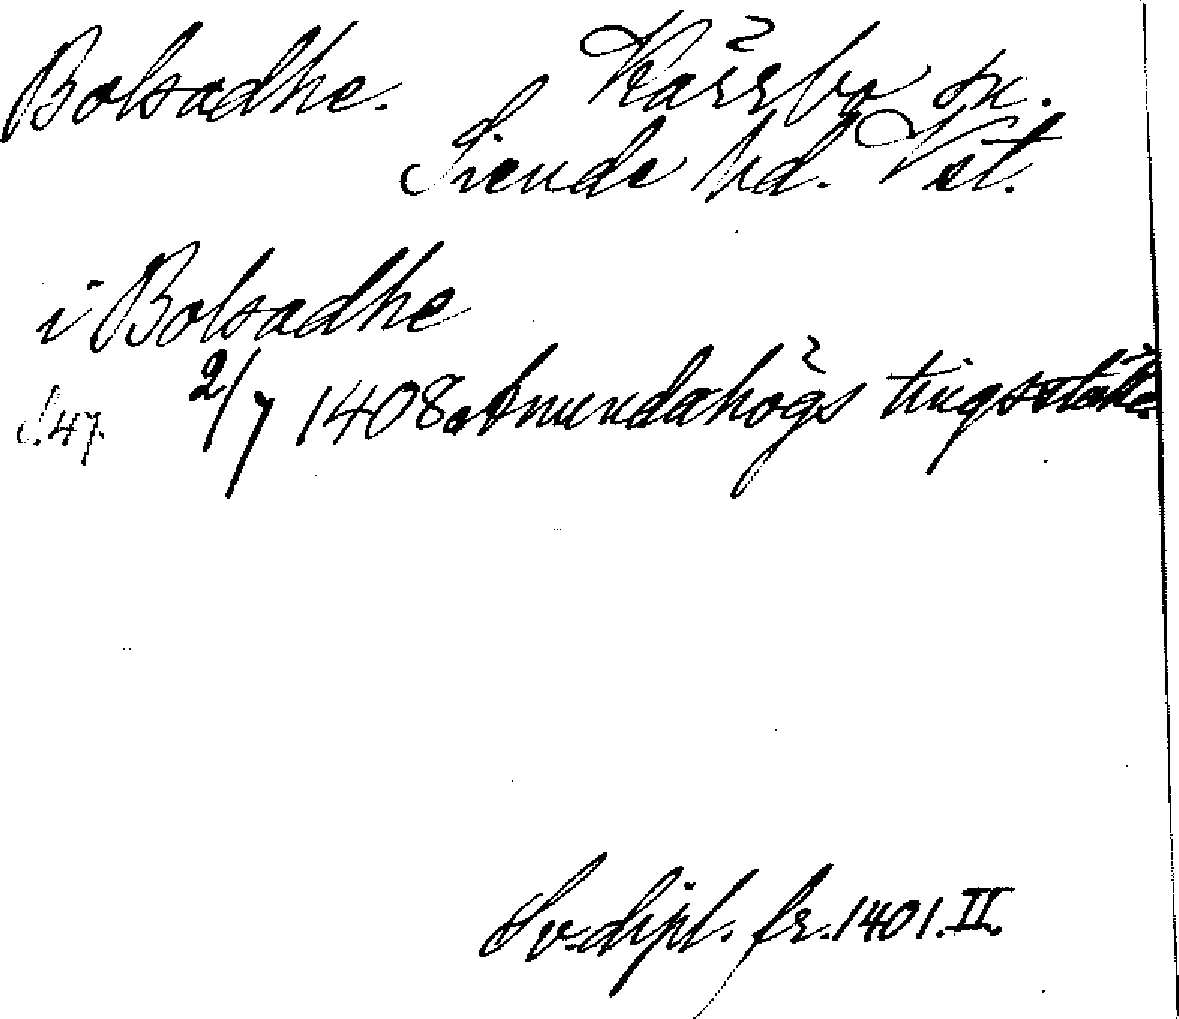 Bolsadhe. Kärrbo sn.
Siende hd. Vst.
i Bolsadhe
S. 47. 2/7 1408. Anundahögs tingsställe.
Sv. dipl. fr. 1401. II.